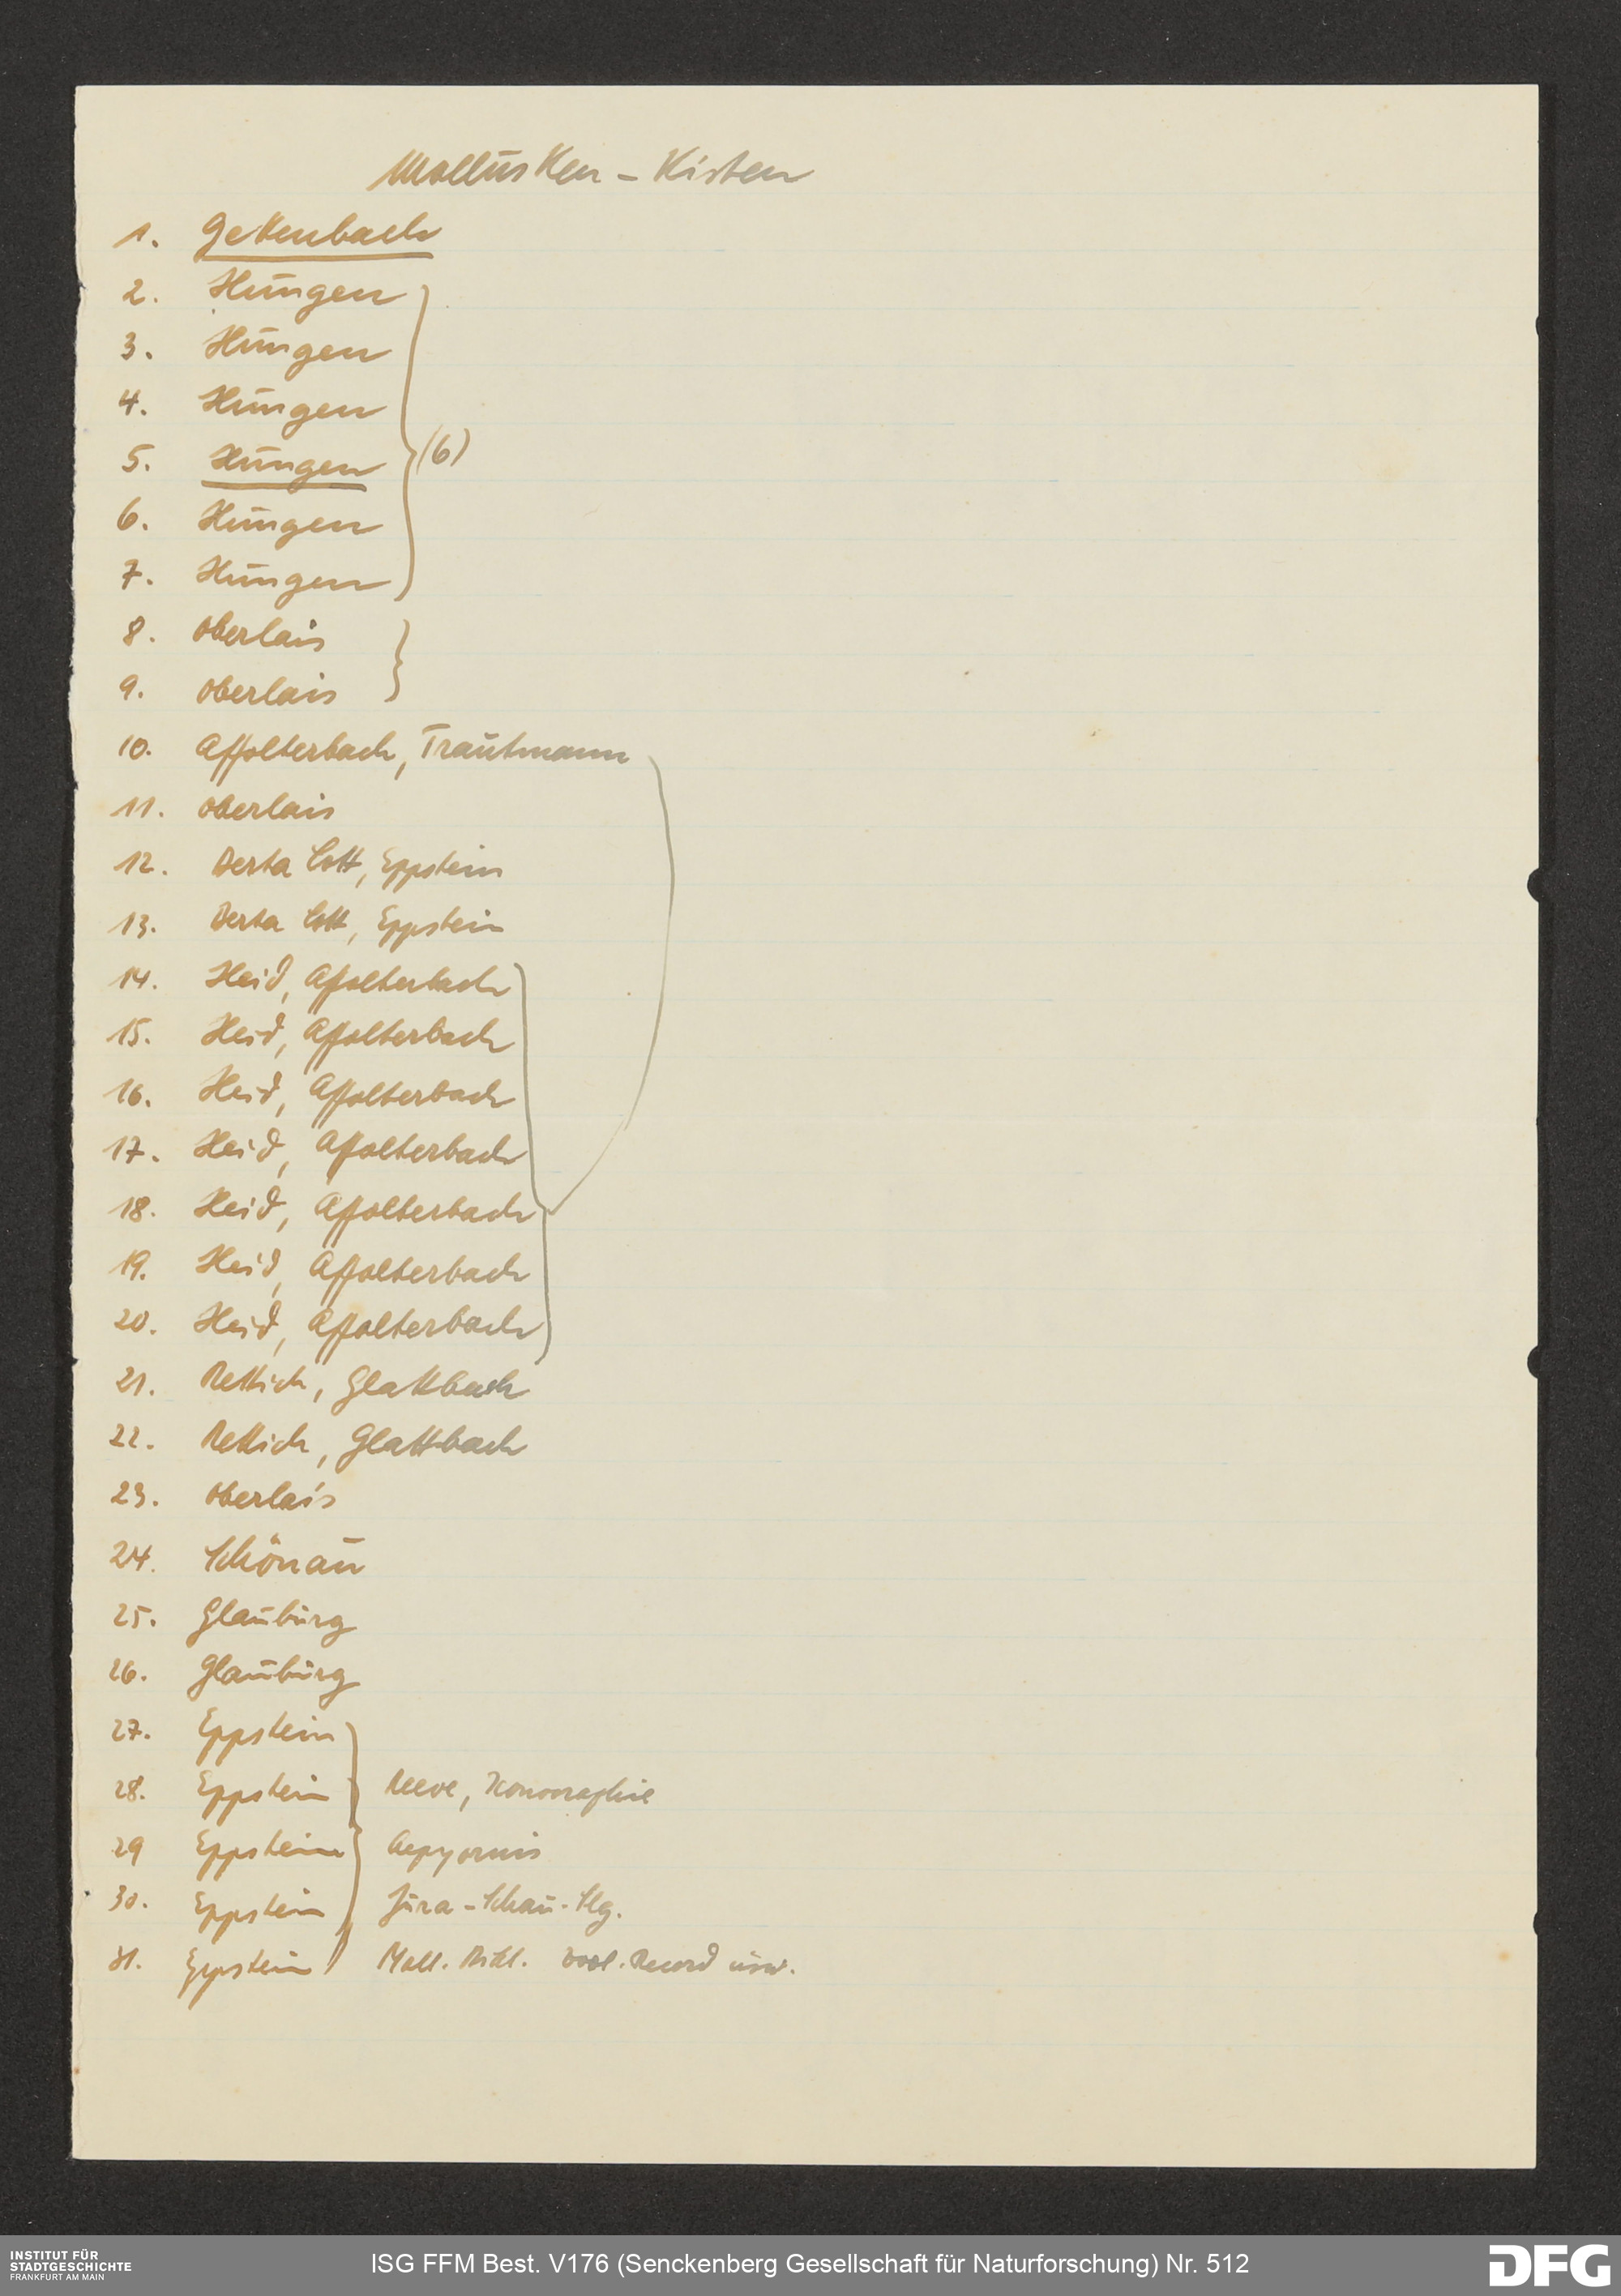 Mollusken - Kisten
1. Gettenbach
2. Hungen
3. Hungen
4. Hungen
5. Hungen (6)
6. Hungen
7. Hungen
8. Oberlais
9. Oberlais
10. Affolterbach, Trautmann
11. Oberlais
12. Berta Cott, Eppstein
13. Berta Cott, Eppstein
14. Heid, Affolterbach
15. Heid, Affolterbach
16. Heid, Affolterbach
17. Heid, Affolterbach
18. Heid, Affolterbach
19. Heid, Affolterbach
20. Heid, Affolterbach
21. Rettich, Glattbach
22. Rettich, Glattbach
23. Oberlais
24. Schönau
25. Glauburg
26. Glauburg
27. Eppstein
28. Eppstein Reeve, Iconographie
29 Eppstein Aepyornis
30. Eppstein Jura-Schau-Slg.
31. Eppstein Moll. Bibl. Zool. Record usw.
INSTITUT FÜR
STADTGESCHICHTE
FRANKFURT AM MAIN
ISG FFM Best. V176 (Senckenberg Gesellschaft für Naturforschung) Nr. 512
DFG